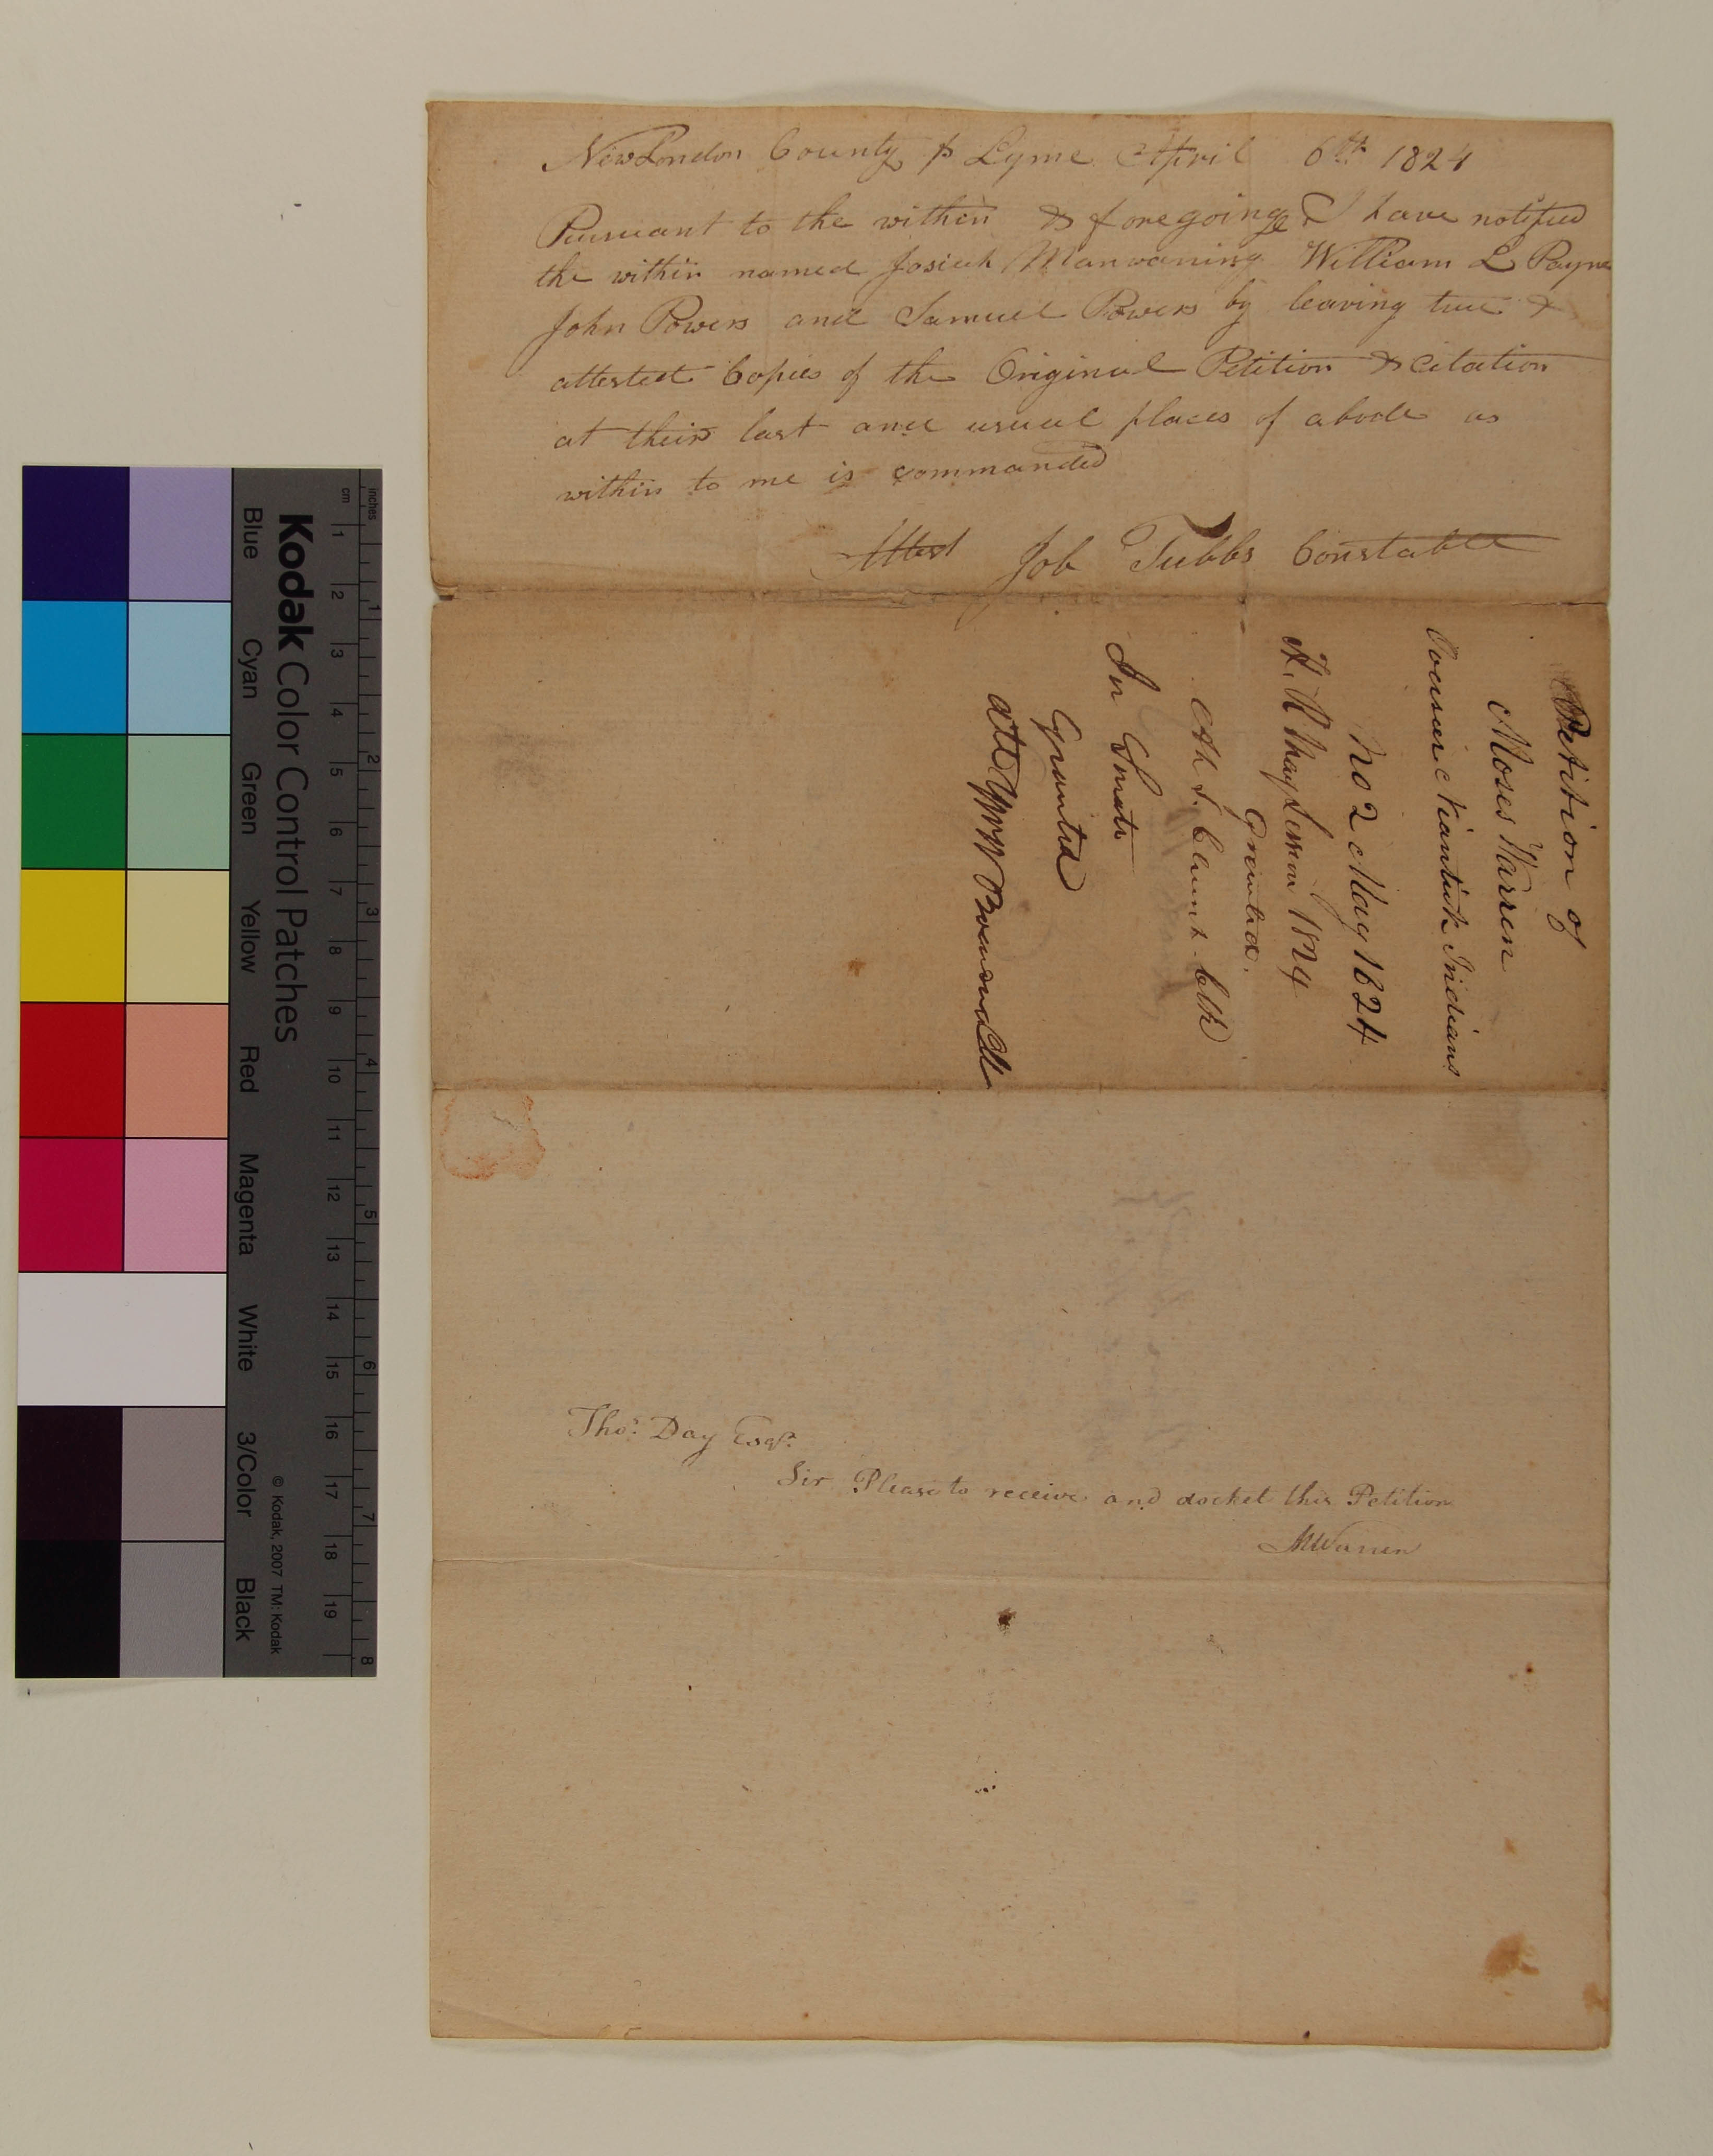 New London County ss Lyme April 6th 1824
Pursuant to the within & foregoing I have notified
the within named Josiah Manwaring William L Payne
John Powers and Samuel Powers by leaving true &
attested Copies of the Original Petition & citation
at their last and usual places of abode as
within to me is commanded
Attest Job Tubbs Constable
Petition of
Moses Warren
Overseer Niantick Indians
No 2 May 1824
H. R May Session 1824
Granted.
Clk
In Senate
Granted
Thos. Day Esqr.
Sir Please to receive and docket this Petition
M Warren
Kodak Color Control Patches
Blue Cyan Green Yellow Red Magenta White 3/Color Black
© Kodak, 2007 TM: Kodak
inches 1 2 3 4 5 6 7 8
cm 1 2 3 4 5 6 7 8 9 10 11 12 13 14 15 16 17 18 19